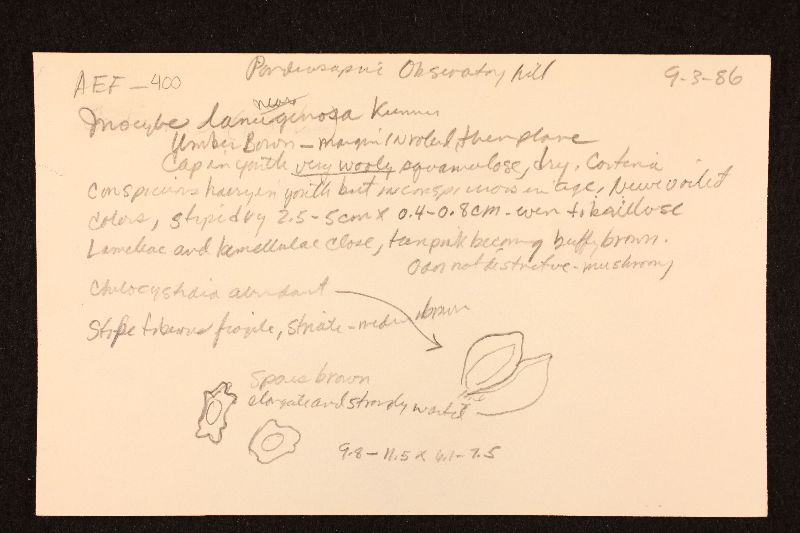 AEF-400 Ponderosa pine Observatory hill 9-3-86
near
Inocybe lanuginosa Kummer
Umber Brown - margin inrolled then plane
Cap in youth very wooly squamulose, dry. Cortina
conspicuous hairy in youth but inconspicuous in age, Never violet
colors, stipe dry 2.5-5cm x 0.4-0.8cm - even fibrillose
Lamellae and lamellulae close, tan pink becoming buffy brown.
Odor not distinctive - mushroomy
Chilocystidia abundant
Stipe fibrous fragile, striate - medium brown
Spores brown
elongate and strongly warted
9.8-11.5 x 6.1-7.5